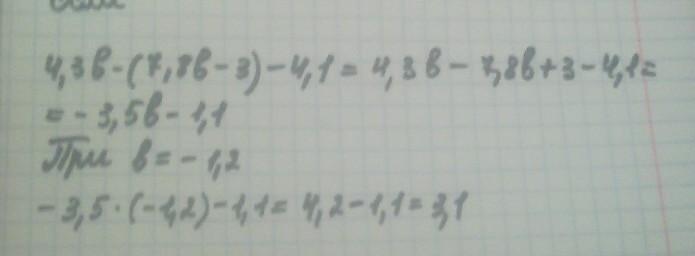 4,3в-(7,8в-3)-4,1= 4,3в-7,8в+3-4,1=
=-3,5в-1,1
При в=-1,2
-3,5·(-1,2)-1,1= 4,2-1,1=3,1